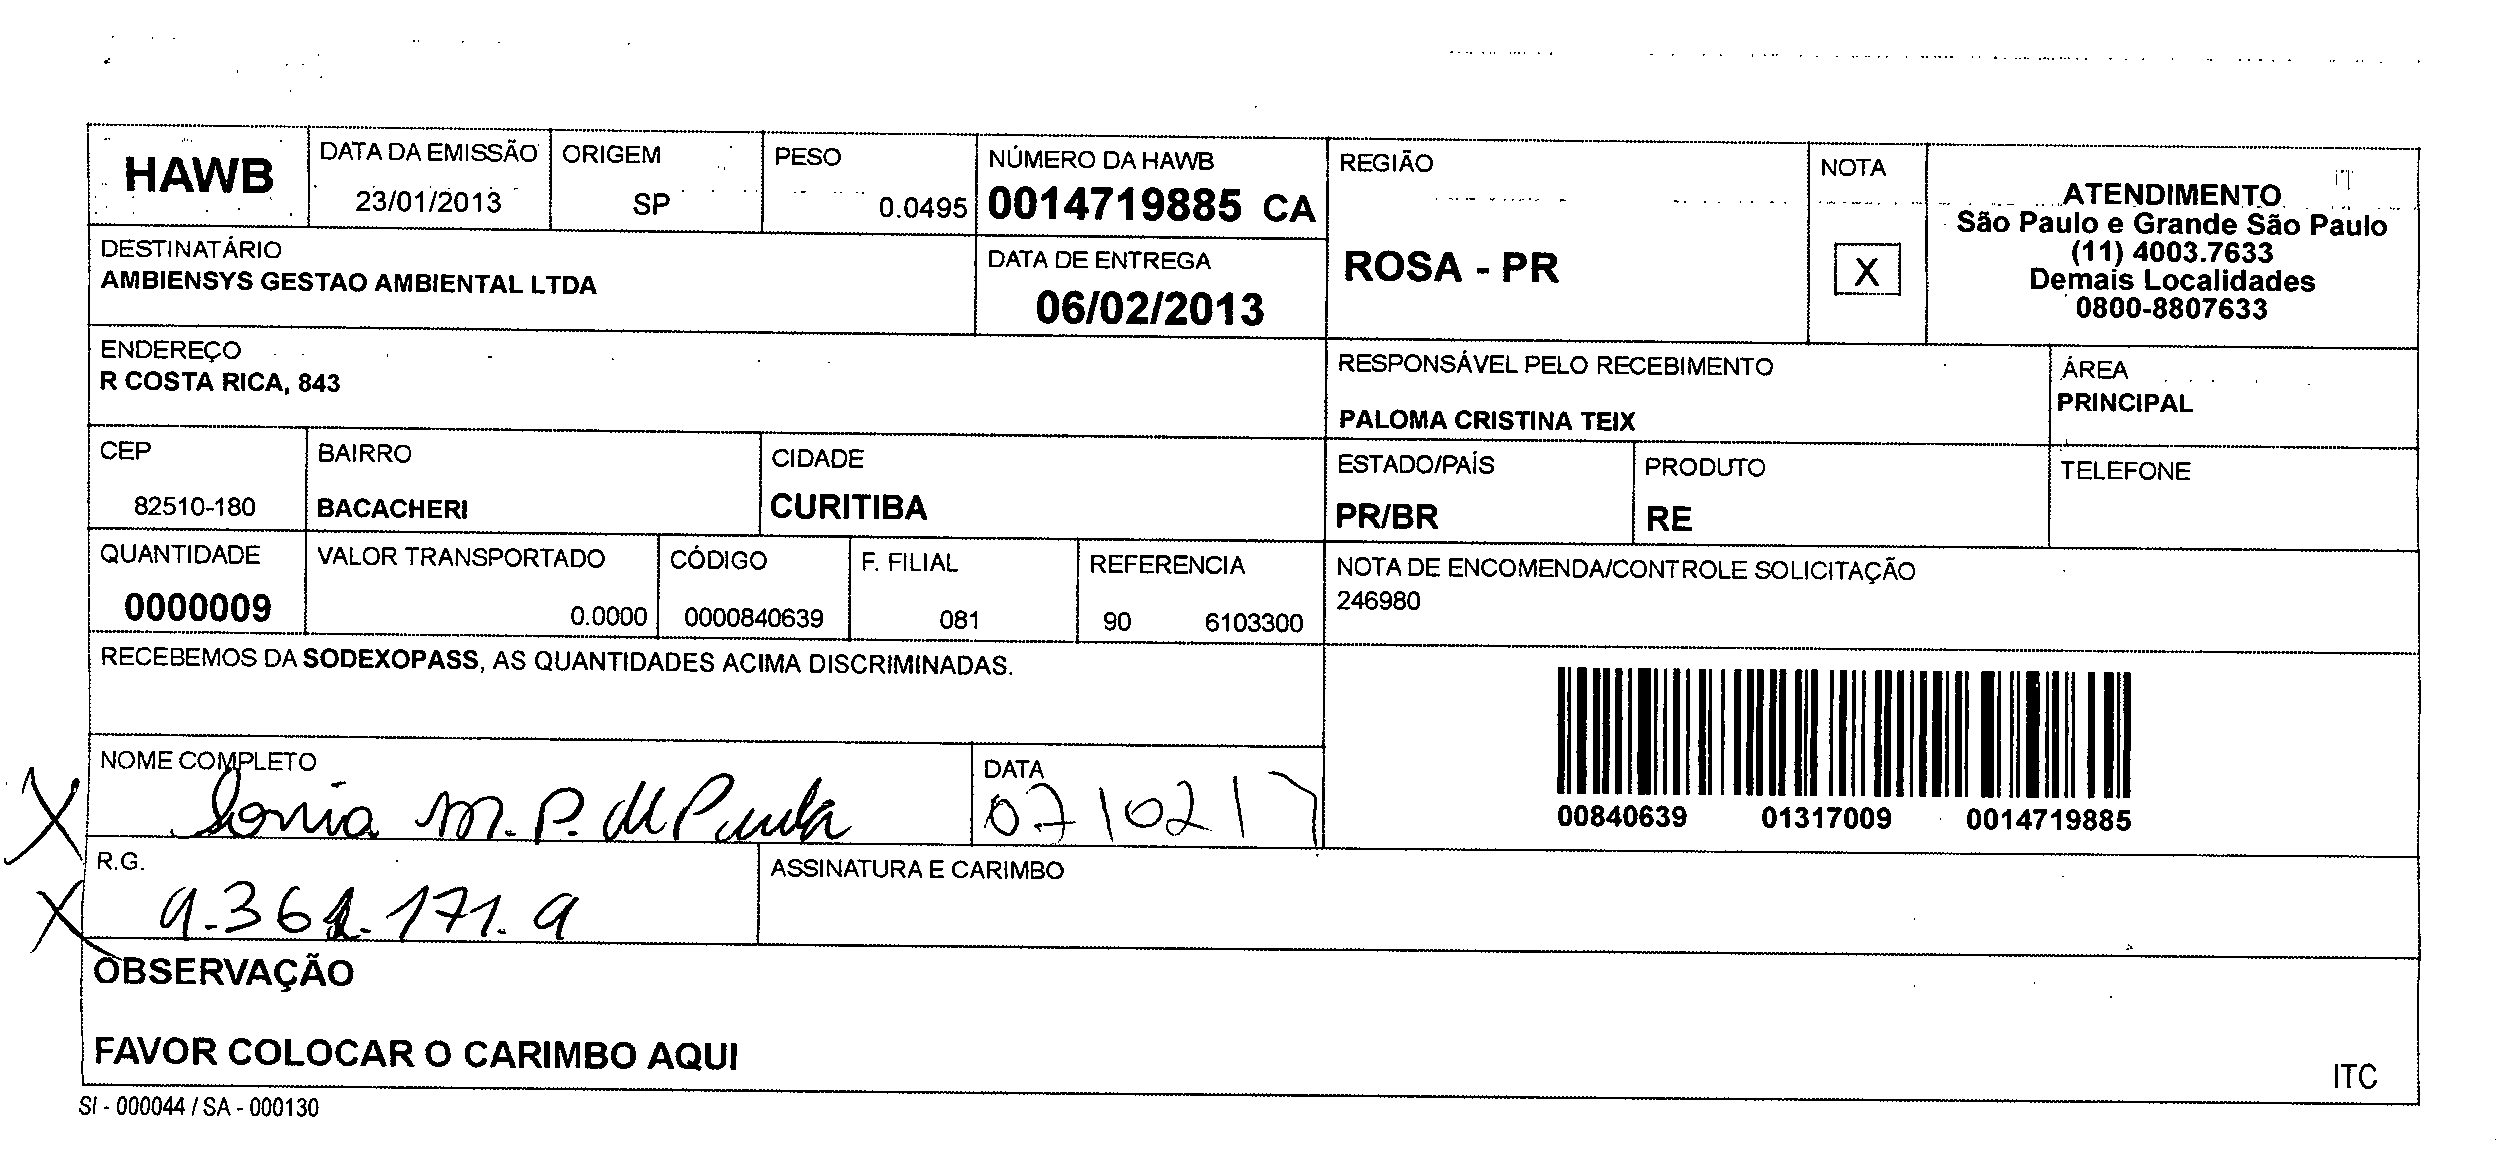 HAWB
DATA DA EMISSÃO
23/01/2013
ORIGEM
SP
PESO
0.0495
NÚMERO DA HAWB
0014719885 CA
REGIÃO
ROSA - PR
NOTA
X
ATENDIMENTO
São Paulo e Grande São Paulo
(11) 4003.7633
Demais Localidades
0800-8807633
DESTINATÁRIO
AMBIENSYS GESTAO AMBIENTAL LTDA
DATA DE ENTREGA
06/02/2013
ENDEREÇO
R COSTA RICA, 843
RESPONSÁVEL PELO RECEBIMENTO
PALOMA CRISTINA TEIX
ÁREA
PRINCIPAL
CEP
82510-180
BAIRRO
BACACHERI
CIDADE
CURITIBA
ESTADO/PAÍS
PR/BR
PRODUTO
RE
TELEFONE
QUANTIDADE
0000009
VALOR TRANSPORTADO
0.0000
CÓDIGO
0000840639
F. FILIAL
081
REFERENCIA
90 6103300
NOTA DE ENCOMENDA/CONTROLE SOLICITAÇÃO
246980
RECEBEMOS DA SODEXOPASS, AS QUANTIDADES ACIMA DISCRIMINADAS.
00840639 01317009 0014719885
NOME COMPLETO
X Sonia M. P. de Paula
DATA
07/02/1
R.G.
X 9.361.171.9
ASSINATURA E CARIMBO
OBSERVAÇÃO
FAVOR COLOCAR O CARIMBO AQUI
ITC
SI - 000044 / SA - 000130